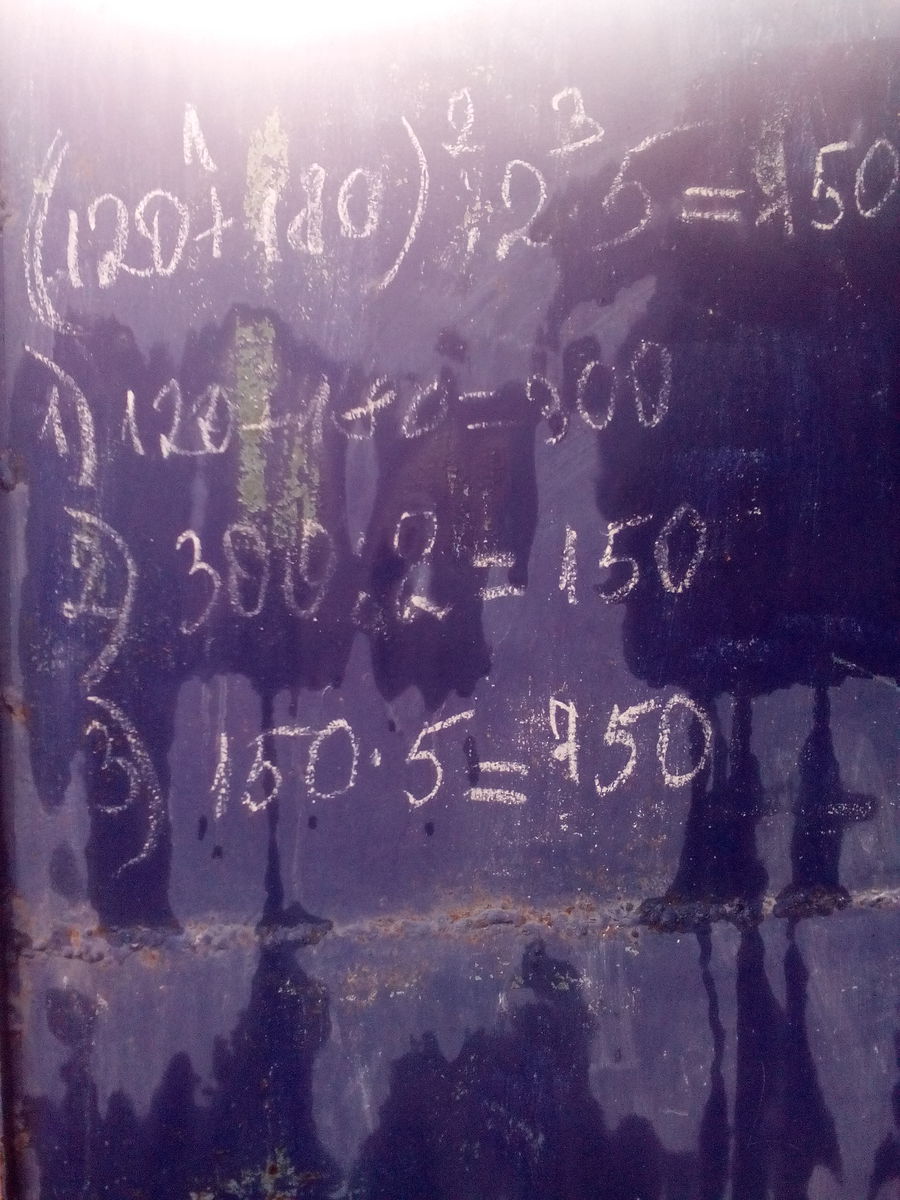 1 2 3
(120+180):2·5=750
1) 120+180=300
2) 300:2=150
3) 150·5=750